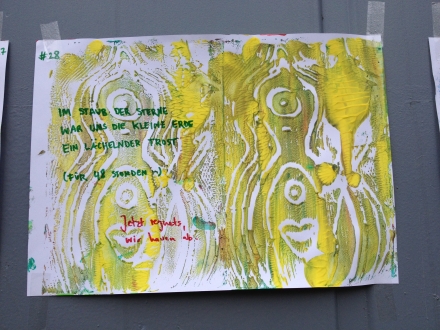 #28
IM STAUB DER STERNE
WAR UNS DIE KLEINE ERDE
EIN LÄCHELNDER TROST
(FÜR 48 STUNDEN
Jetzt regnets,
wir hauen ab.
7